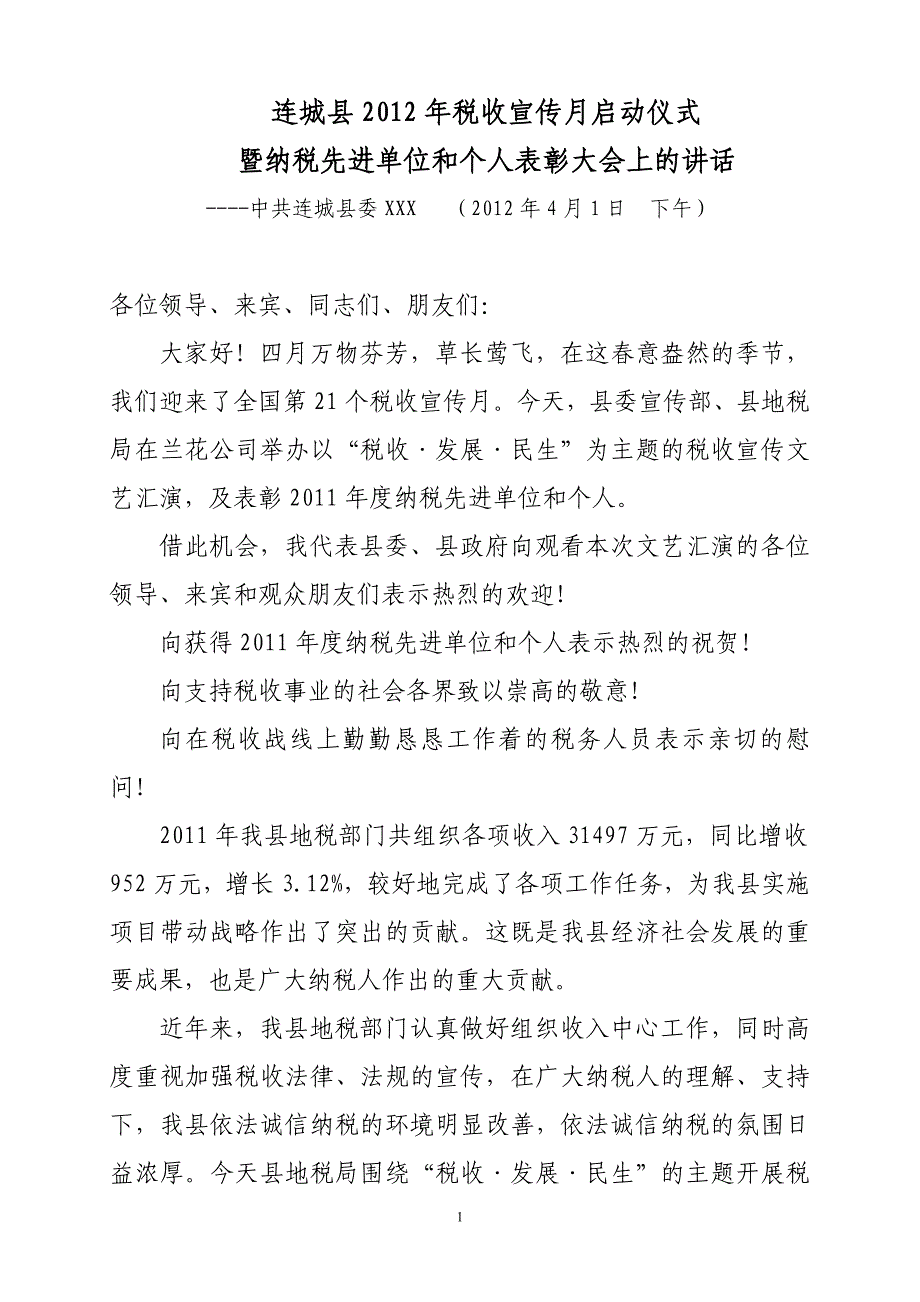 连城县 2012 年税收宣传月启动仪式
暨纳税先进单位和个人表彰大会上的讲话
----中共连城县委 XXX （2012 年 4 月 1 日 下午）
各位领导、来宾、同志们、朋友们：
大家好！四月万物芬芳，草长莺飞，在这春意盎然的季节，
我们迎来了全国第 21 个税收宣传月。今天，县委宣传部、县地税
局在兰花公司举办以“税收·发展·民生”为主题的税收宣传文
艺汇演，及表彰 2011 年度纳税先进单位和个人。
借此机会，我代表县委、县政府向观看本次文艺汇演的各位
领导、来宾和观众朋友们表示热烈的欢迎！
向获得 2011 年度纳税先进单位和个人表示热烈的祝贺！
向支持税收事业的社会各界致以崇高的敬意！
向在税收战线上勤勤恳恳工作着的税务人员表示亲切的慰
问！
2011 年我县地税部门共组织各项收入 31497 万元，同比增收
952 万元，增长 3.12%，较好地完成了各项工作任务，为我县实施
项目带动战略作出了突出的贡献。这既是我县经济社会发展的重
要成果，也是广大纳税人作出的重大贡献。
近年来，我县地税部门认真做好组织收入中心工作，同时高
度重视加强税收法律、法规的宣传，在广大纳税人的理解、支持
下，我县依法诚信纳税的环境明显改善，依法诚信纳税的氛围日
益浓厚。今天县地税局围绕“税收·发展·民生”的主题开展税
1